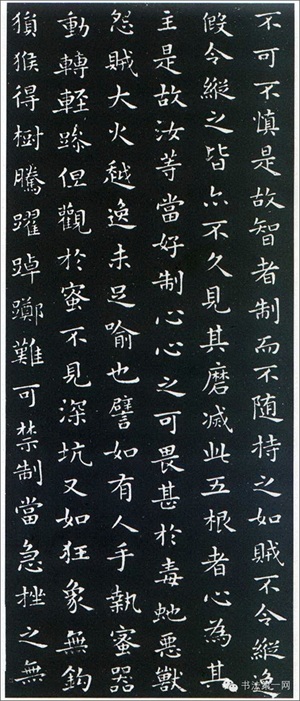 不可不慎是故智者制而不隨持之如賊不令縱逸
假令縱之皆亦不久見其磨滅此五根者心為其
主是故汝等當好制心心之可畏甚於毒虵惡獸
怨賊大火越逸未足喻也譬如有人手執蜜器
動轉輕躁但觀於蜜不見深坑又如狂象無鉤
猨猴得樹騰躍踔躑難可禁制當急挫之無
书法第一网